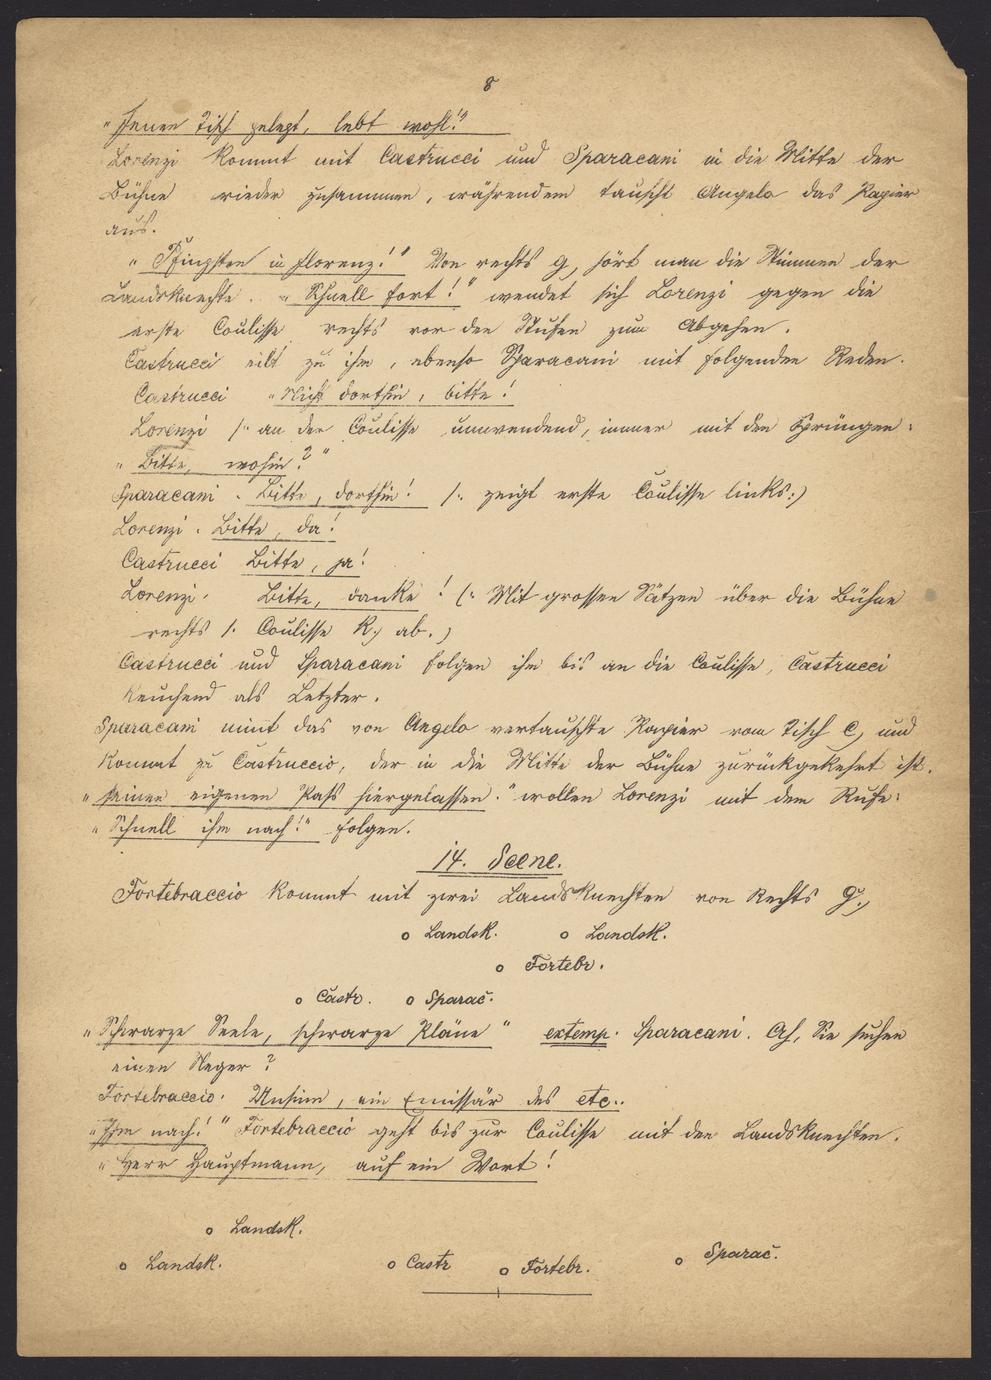 8
„Jenen Tisch gelegt, lebt wohl!"
Lorenzi kommt mit Castrucci und Sparacani in die Mitte der
Bühne wieder zusammen, währenddem tauscht Angelo das Papier
aus.
„Pfingsten in Florenz!" Von rechts G, hört man die Stimmen der
Landsknechte. „Schnell fort!" wendet sich Lorenzi gegen die
erste Coulisse rechts vor den Stufen zum Abgehen.
Castrucci eilt zu ihm, ebenso Sparacani mit folgenden Reden.
Castrucci „Nicht dorthin, bitte!
Lorenzi /: an der Coulisse umwendend, immer mit den Sprüngen:
„Bitte, wohin?"
Sparacani. Bitte, dorthin! /: zeigt erste Coulisse links:)
Lorenzi. Bitte, da!
Castrucci Bitte, ja!
Lorenzi. Bitte, danke! (: Mit grossen Sätzen über die Bühne
rechts 1. Coulisse K, ab.)
Castrucci und Sparacani folgen ihm bis an die Coulisse, Castrucci
keuchend als Letzter.
Sparacani nimt das von Angelo vertauschte Papier vom Tisch C, und
kommt zu Castruccio, der in die Mitte der Bühne zurückgekehrt ist.
„seinen eigenen Pass hiergelassen." wollen Lorenzi mit dem Rufe:
„Schnell ihm nach!" folgen.
14. Scene.
Fortebraccio kommt mit zwei Landsknechten von Rechts G,
o Landsk. o Landsk.
o Fortebr.
o Castr. o Sparac.
„Schwarze Seele, schwarze Pläne" extemp. Sparacani. Ah, Sie suchen
einen Neger?
Fortebraccio. Unsinn, ein Emissär des etc..
„Ihm nach!" Fortebraccio geht bis zur Coulisse mit den Landsknechten.
„Herr Hauptmann, auf ein Wort!
o Landsk.
o Landsk. o Castr o Fortebr. o Sparac.